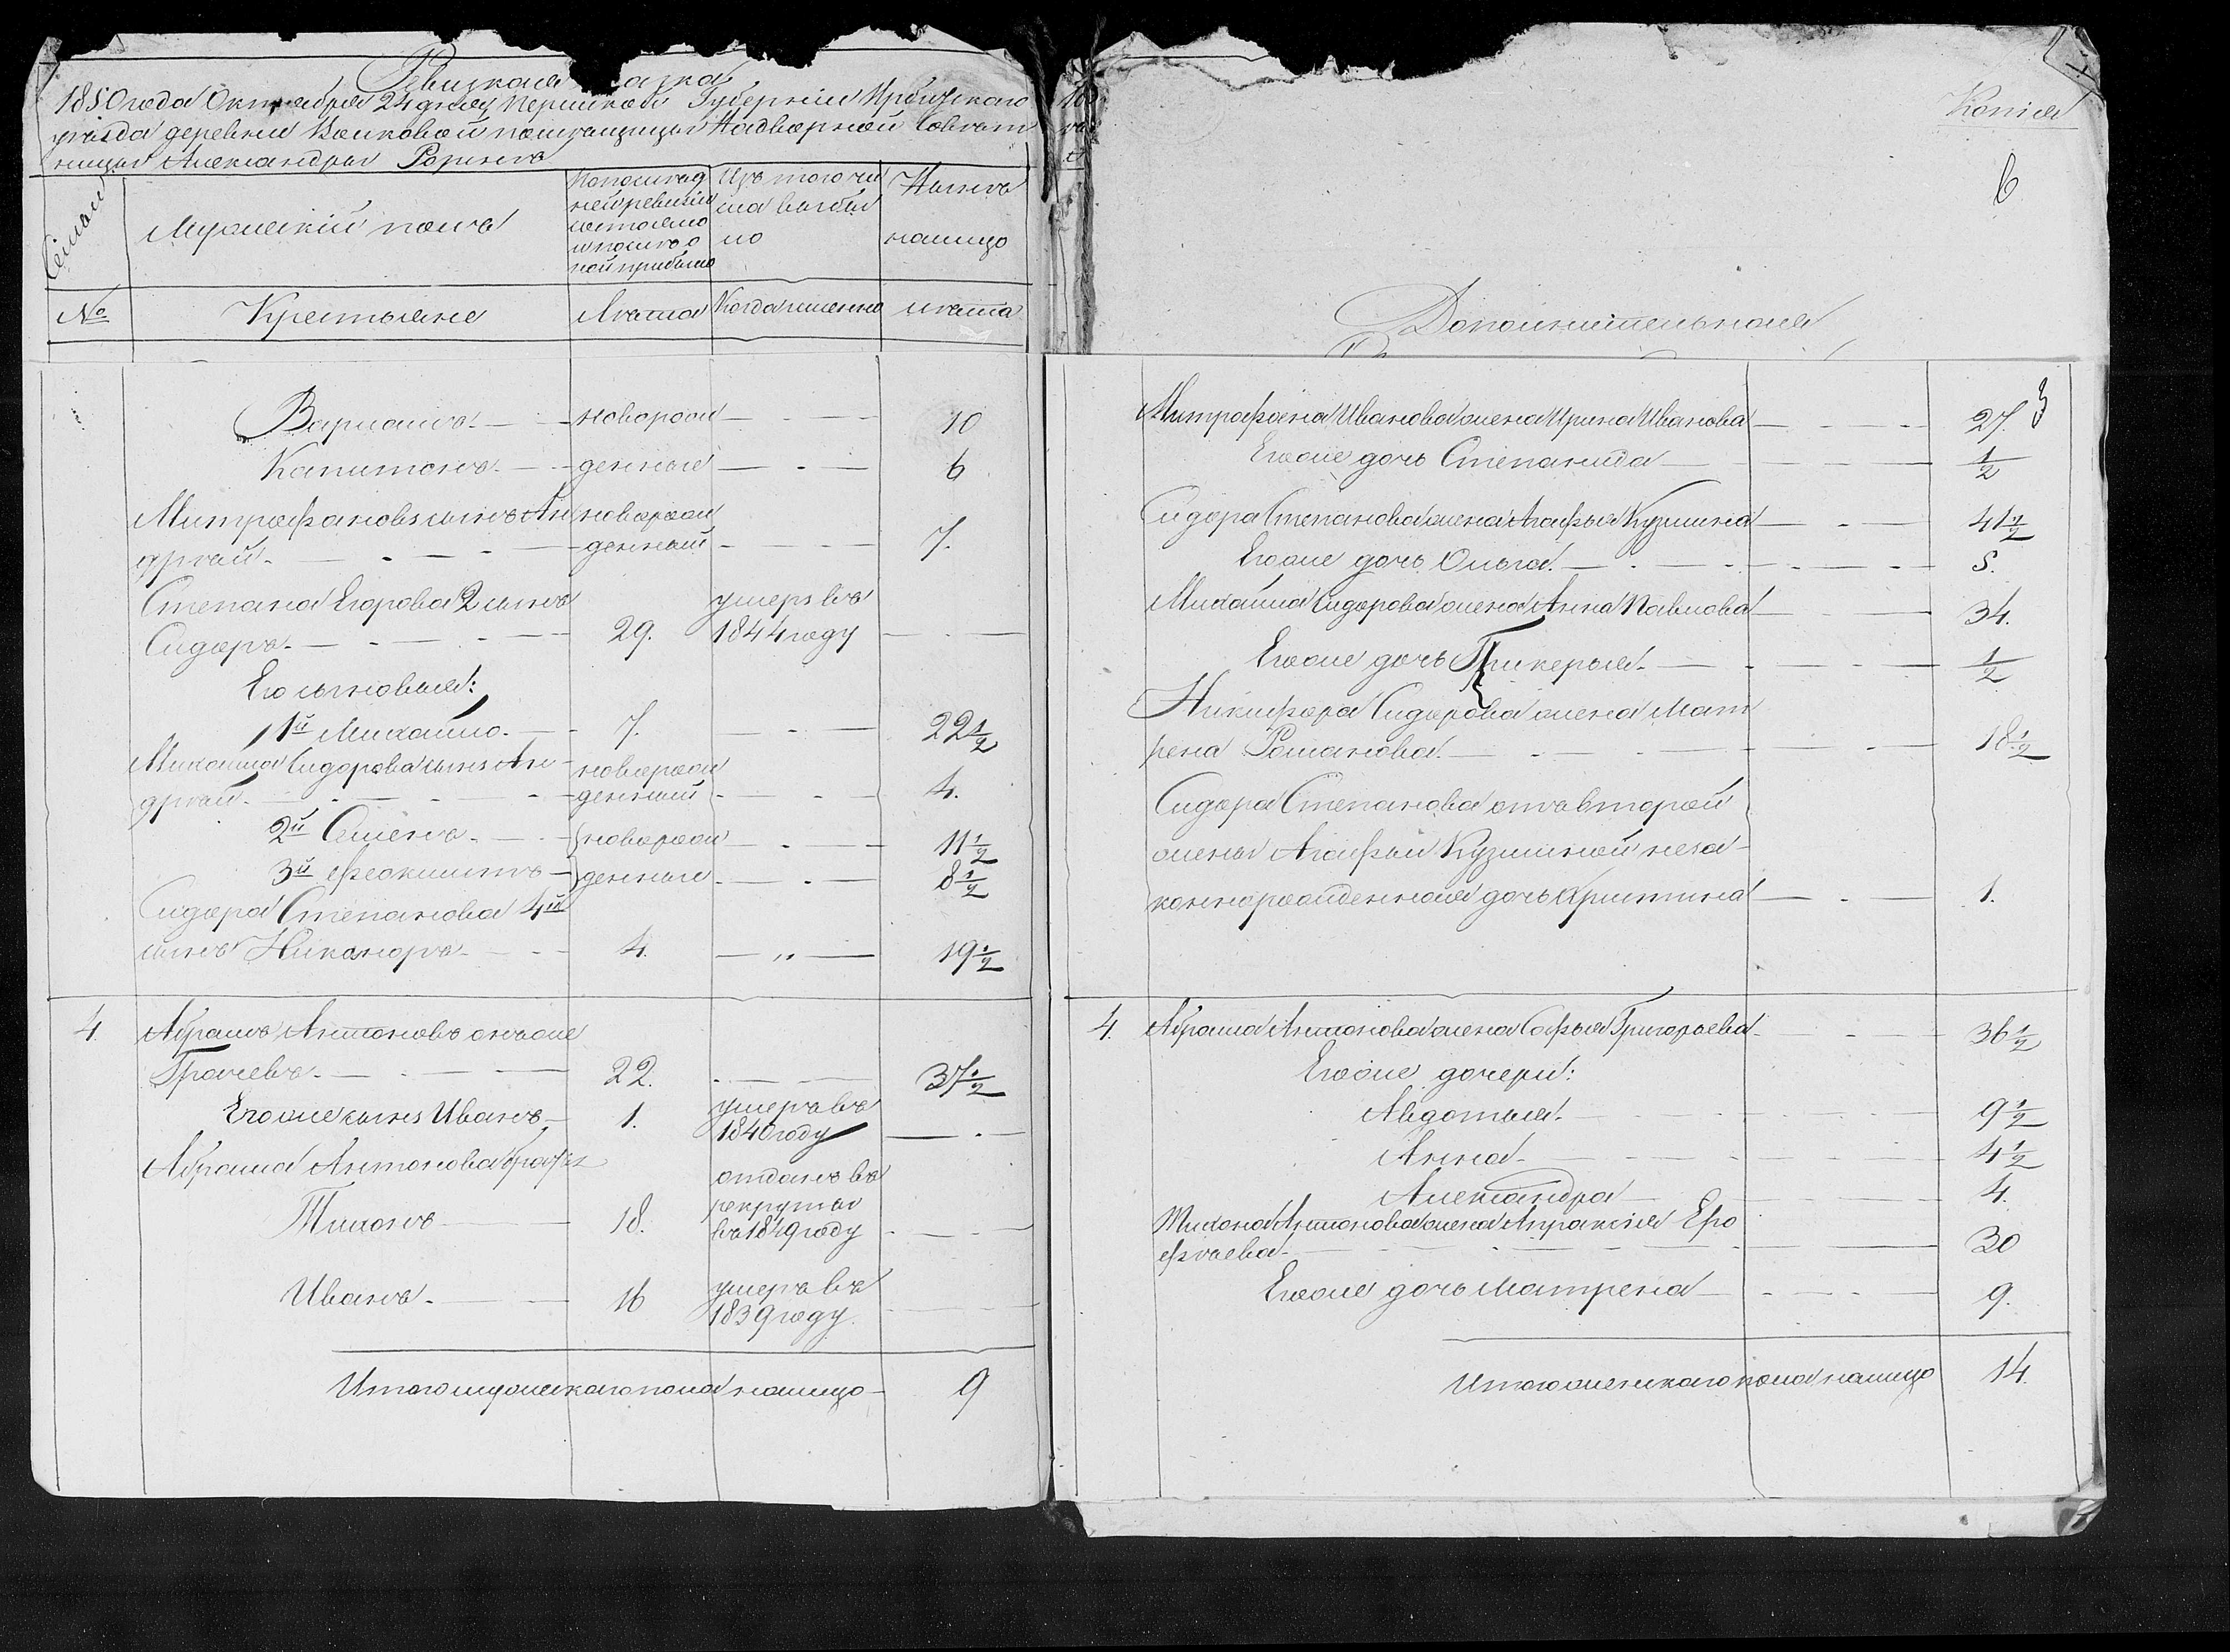 Ревизская сказка
1850 года Октября 24 дня Пермской Губернии Ирбитского
уезда деревни помещицы Надворной Советн
ницы Александры
Семьи
Мужескій полъ
По послѣд
ней ревизіи
состояло
и послѣ о
ной прибыло
Изъ того чи
сла выбы
ло
Нынѣ
налицо
№
Крестьяне
Лѣта
Когда именно
лѣта
Варламъ новорож 10
Капитонъ денные 6
Митрофановъ сынъ Ан новорож
дрей денный 7.
Степана Егорова 2 сынъ умеръ въ
Сидоръ 29. 1844 году
Его сыновья:
1й Михайло 7. 22 1/2
Михаила Сидорова сынъ Ан новорож
дрей денный 4.
2й Семенъ новорож 11 1/2
3й Феоктистъ денные 8 1/2
Сидора Степанова 4й
сынъ Никаноръ 4. „ 19 1/2
4. Абрамъ Антоновъ онъ же
Грачевъ 22. 37 1/2
Его же сынъ Иванъ 1. умеръ въ
1840 году
Абрама Антонова братья
Тихонъ 18. отданъ въ
рекруты
въ 1849 году
Иванъ 16 умеръ въ
1839 году
Итого мужеска пола налицо 9
Копія
6
Дополнительная
3
Митрофана Иванова жена Ирина Иванова 27.
Его же дочь Степанида 1/2
Сидора Степанова жена Агафья Кузмина 41 1/2
Его же дочь Ольга 5.
Михаила Сидорова жена Анна Павлова 34.
Его же дочь Гликерья 1/2
Никифора Сидорова жена Мат
рена Романова 18 1/2
Сидора Степанова отъ второй
жены Агафьи Кузминой неза
коннорожденная дочь Христина 1.
4. Абрама Антонова жена Софья Григорьева 36 1/2
Его же дочери:
Авдотья 9 1/2
Анна 4 1/2
Александра 4.
Тихона Антонова жена Апраксія Еро
феева 30
Его же дочь Матрена 9.
Итого женскаго пола налицо 14.